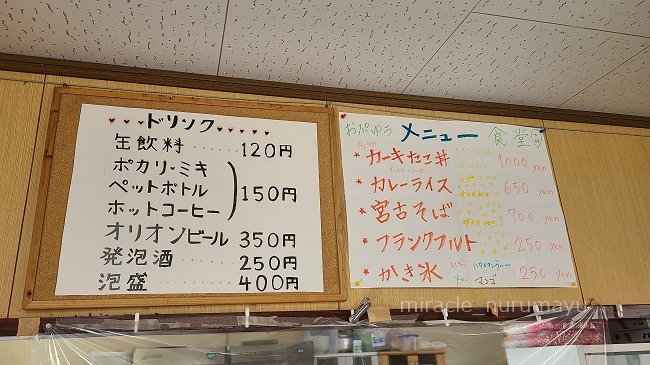 ドリンク
缶飲料 ……… 120円
ポカリ・ミキ
ペットボトル
ホットコーヒー
150円
オリオンビール 350円
発泡酒 ……… 250円
泡盛 ……… 400円
おぷゆう メニュー 食堂
★ カーキたこ丼 1000 yen
★ カレーライス 650 yen
★ 宮古そば 700 yen
★ フランクフルト 250 yen
★ かき氷 250 yen
マンゴ
miracle_nurumayu